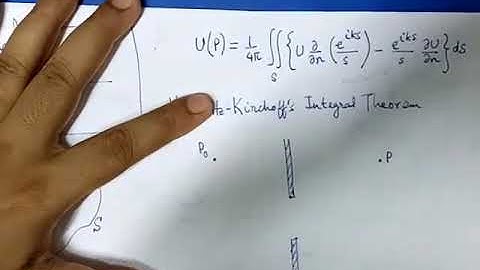 U(P) = 1/4π ∬_S { U ∂/∂n (e^{iks}/s) - e^{iks}/s ∂U/∂n } ds
-Kirchoff's Integral Theorem
P₀ P
S